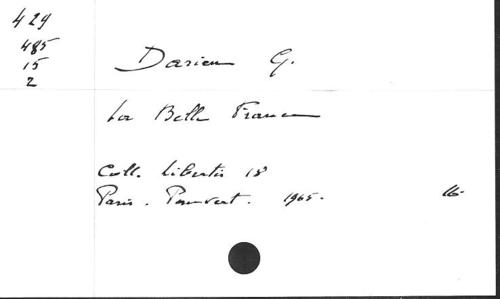 429
485
15
2
Darien G.
La Belle France
Coll. Libertés 18
Paris. Pauvert. 1965. 16-